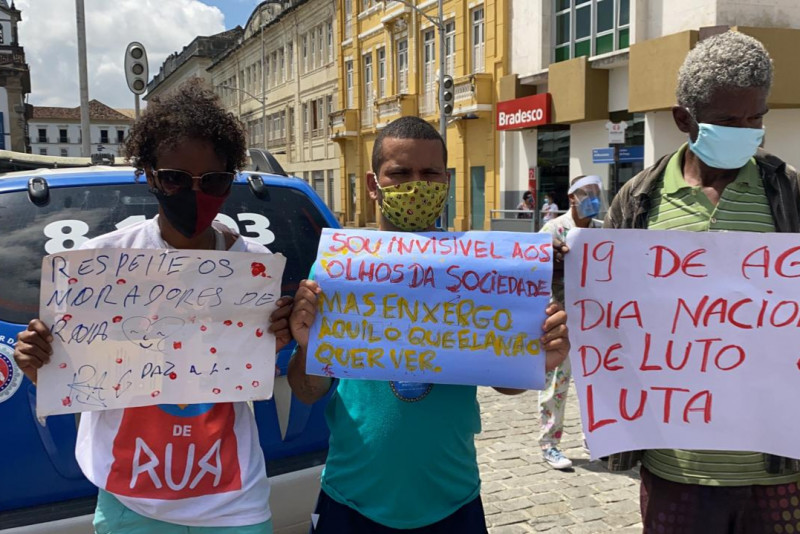 Bradesco
RESPEITE OS
MORADORES DE
RUA
SOU INVISIVEL AOS
OLHOS DA SOCIEDADE
MAS ENXERGO
AQUILO QUE ELA NÃO
QUER VER.
19 DE AG
DIA NACIONA
DE LUTO
LUTA
DE
RUA